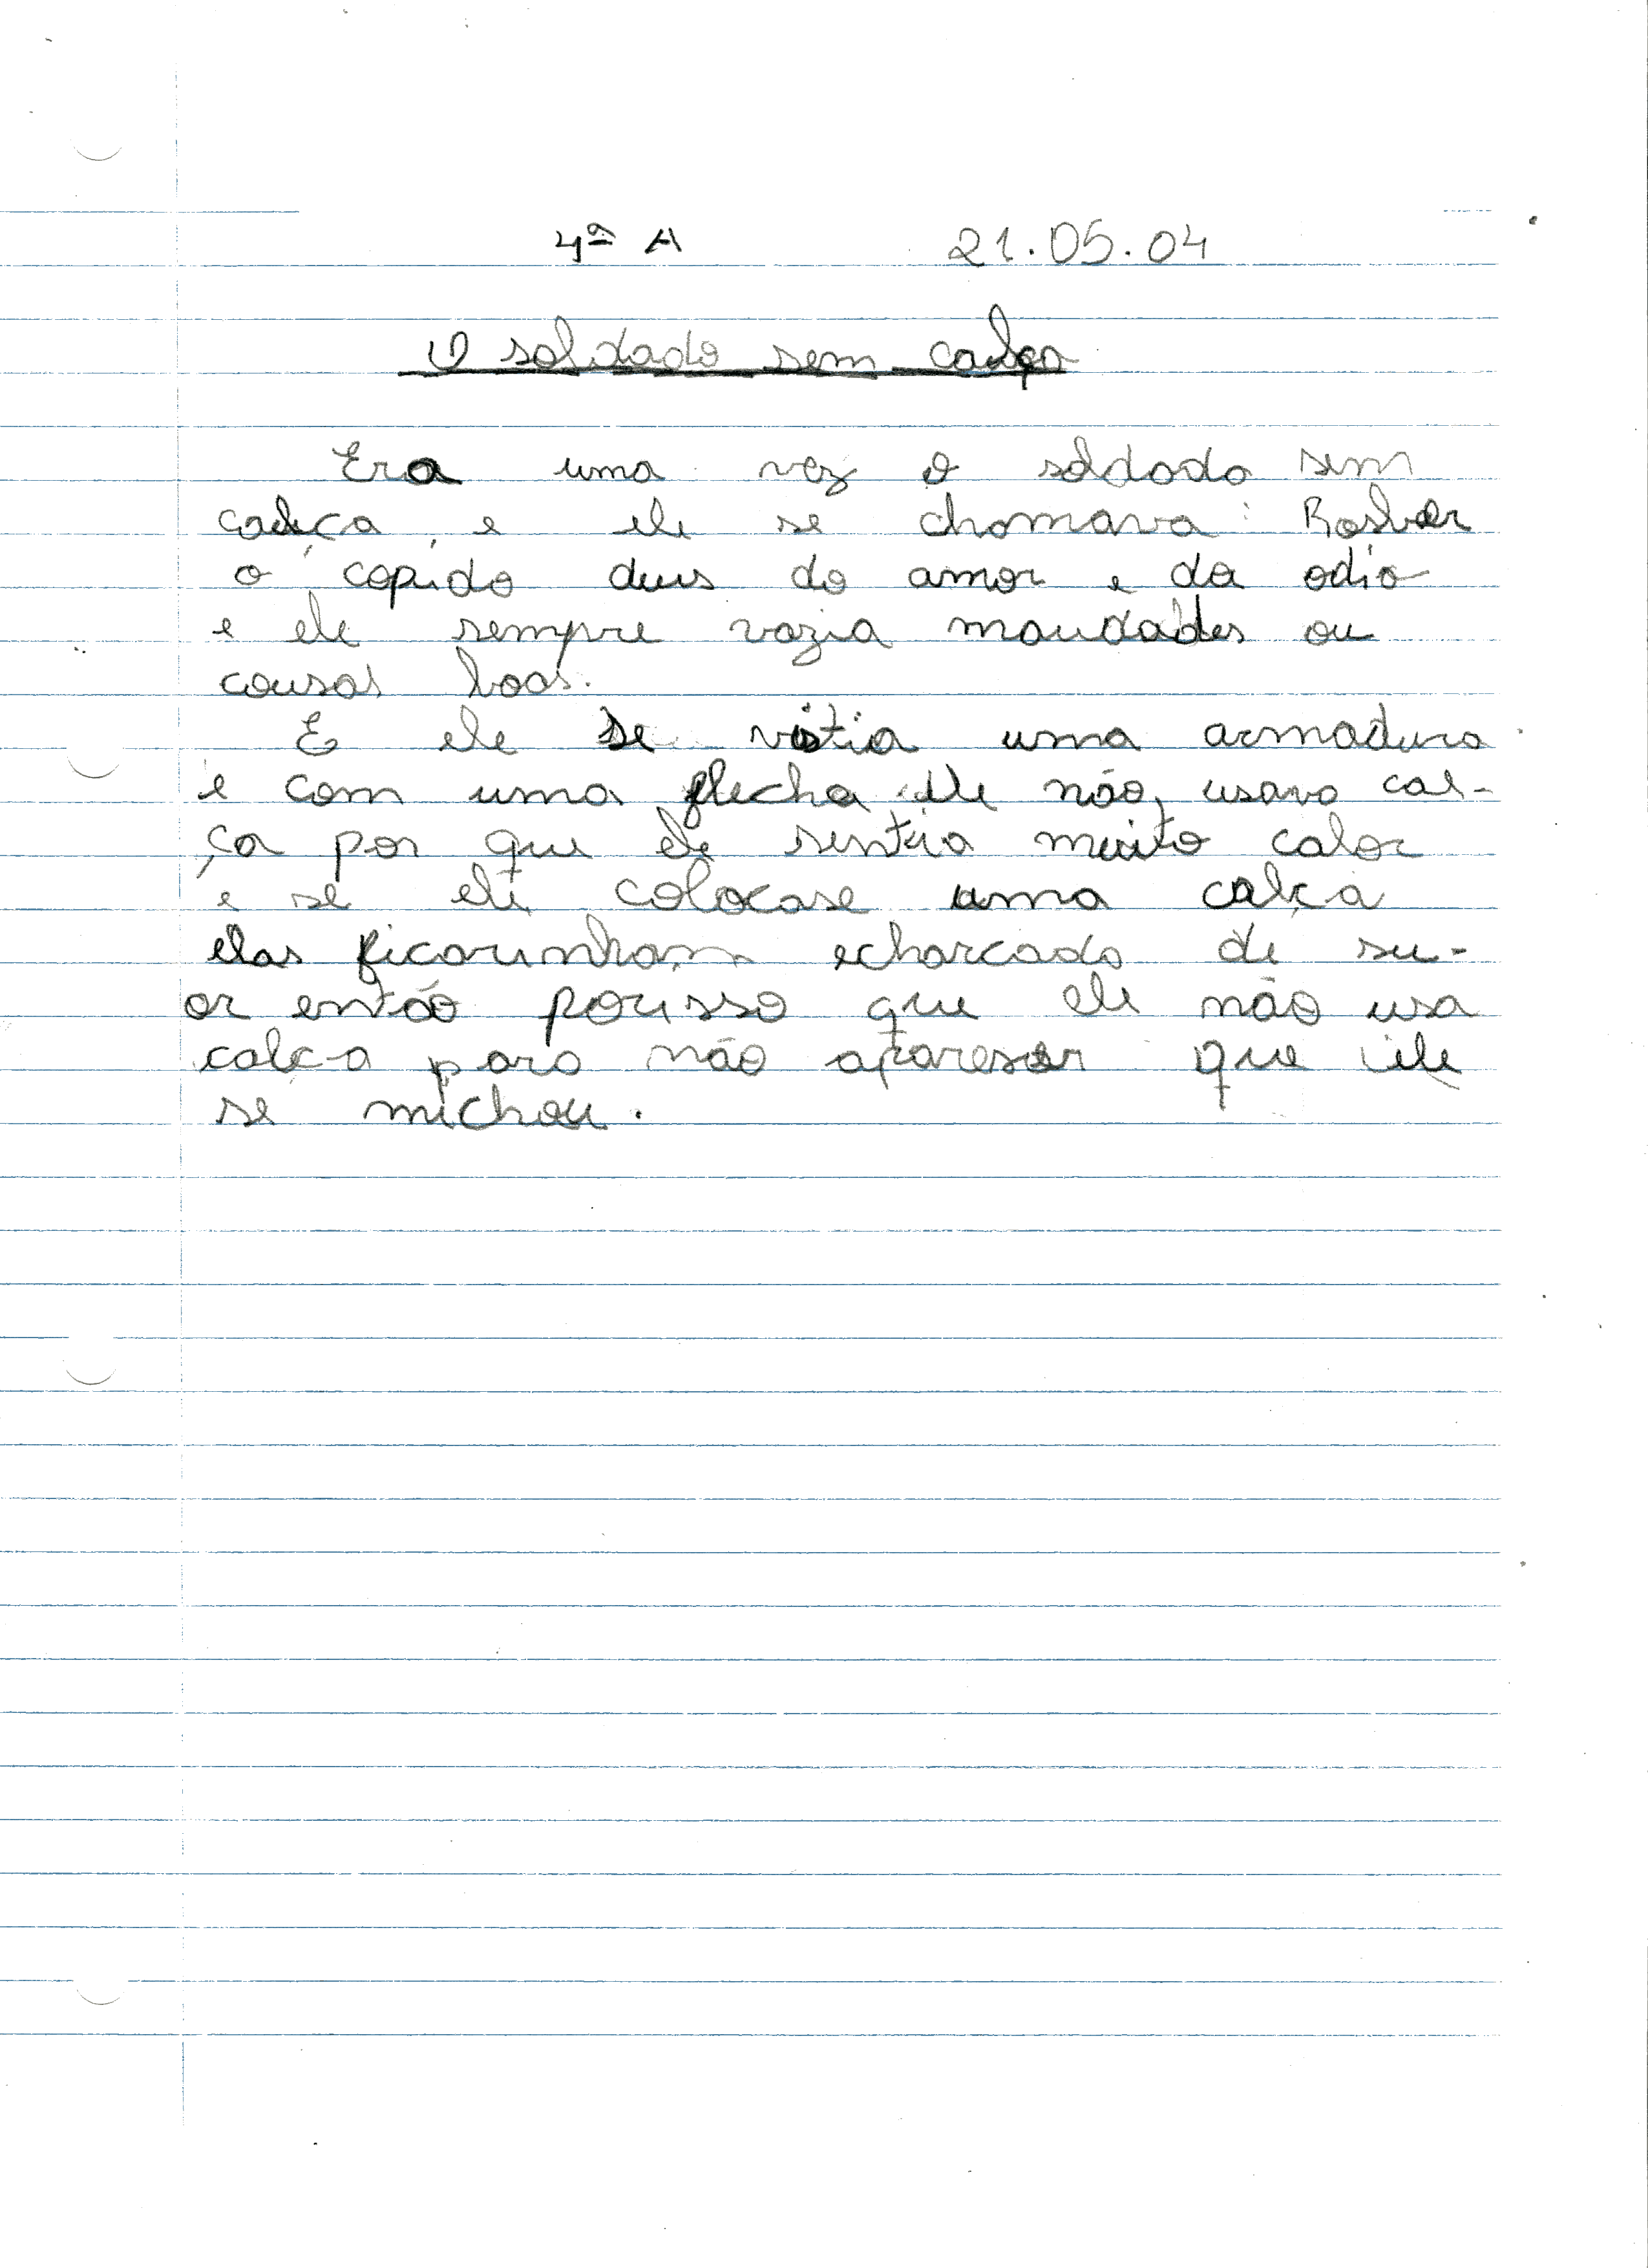 4ª A 21.05.04
O soldado sem calça
Era uma vez o soldado sem
calça, e ele se chamava: Rosber
o copido deus do amor e da odio
e ele sempre vazia maudades ou
cousas boas.
E ele se vistia uma armadura
e com uma flecha ele não, usava cal-
ça por que ele sentia muito calor
e se ele colocase uma calça
elas ficarinham echarcado de su-
or então porisso que ele não usa
calça para não apareser que ele
se michou.